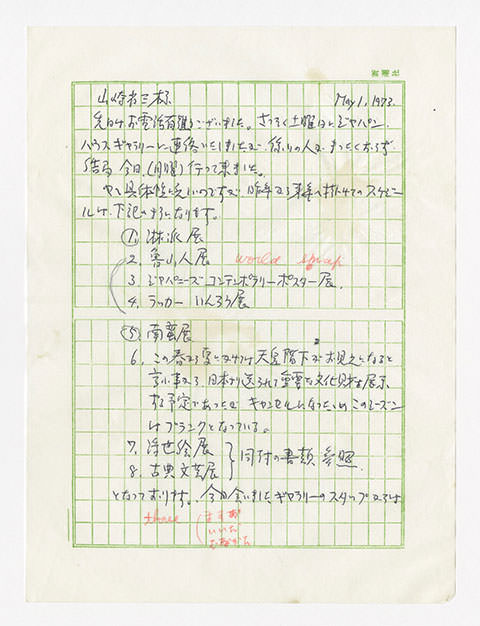 山崎省三様 May 1, 1973.
先日はお電話有難うございました。さっそく土曜日にジャパン
ハウスギャラリーに連絡いたしましたが、係りの人がまったくおらず
結局 今日、(月曜)行って来ました。
やゝ具体性に乏しいのですが、昨年から来春へ掛けてのスケジュー
ルは、下記のようになります。
① 淋派展
2. 魯山人展 world
3. ジャパニーズコンテンポラリーポスター展.
4. ラッカー いんろう展
⑤ 南蛮展
6. この春から夏にかけては天皇陛下がお見えになると
云う事から 日本より送られて 重要な文化財を展示
する予定であったが キャンセルになったため このシーズン
はブランクとなっている。
7. 浮世絵展
8. 古典文芸展
同付の書類 参照.
となっております。今日会いましたギャラリーのスタッフからは
three